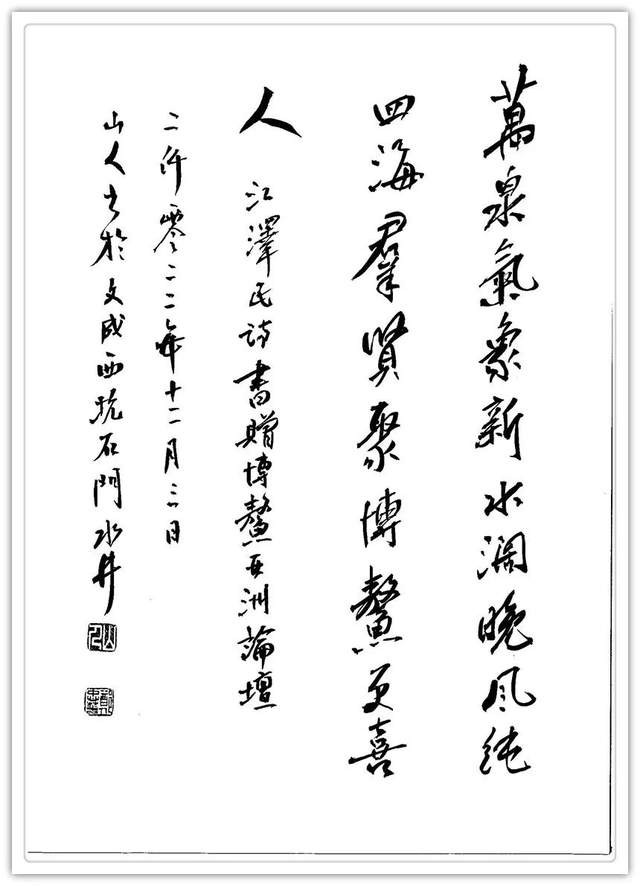 萬泉氣象新水濶晚風純
四海羣賢聚博鰲更喜
人 江澤民詩書贈博鰲亞洲論壇
二仟零二二年十二月三日
山人書於文成西坑石門水井